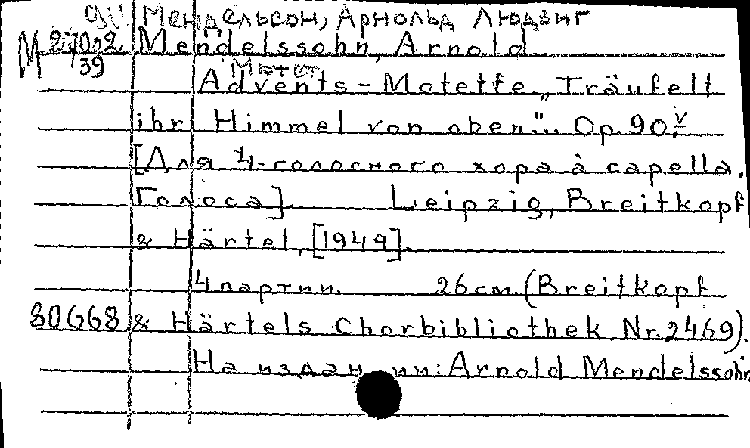 Мендельсон, Арнольд Людвиг
М 27012/39 Mendelssohn, Arnold
Мотет
Advents-Motette „Träufelt
ihr Himmel von oben“. Op. 90.
[Для 4-голосного хора à capella.
Голоса]. Leipzig, Breitkopf
& Härtel, [1949].
4 партии. 26 cm. (Breitkopf
80668 & Härtels Chorbibliothek Nr. 2469).
На издании: Arnold Mendelssohn